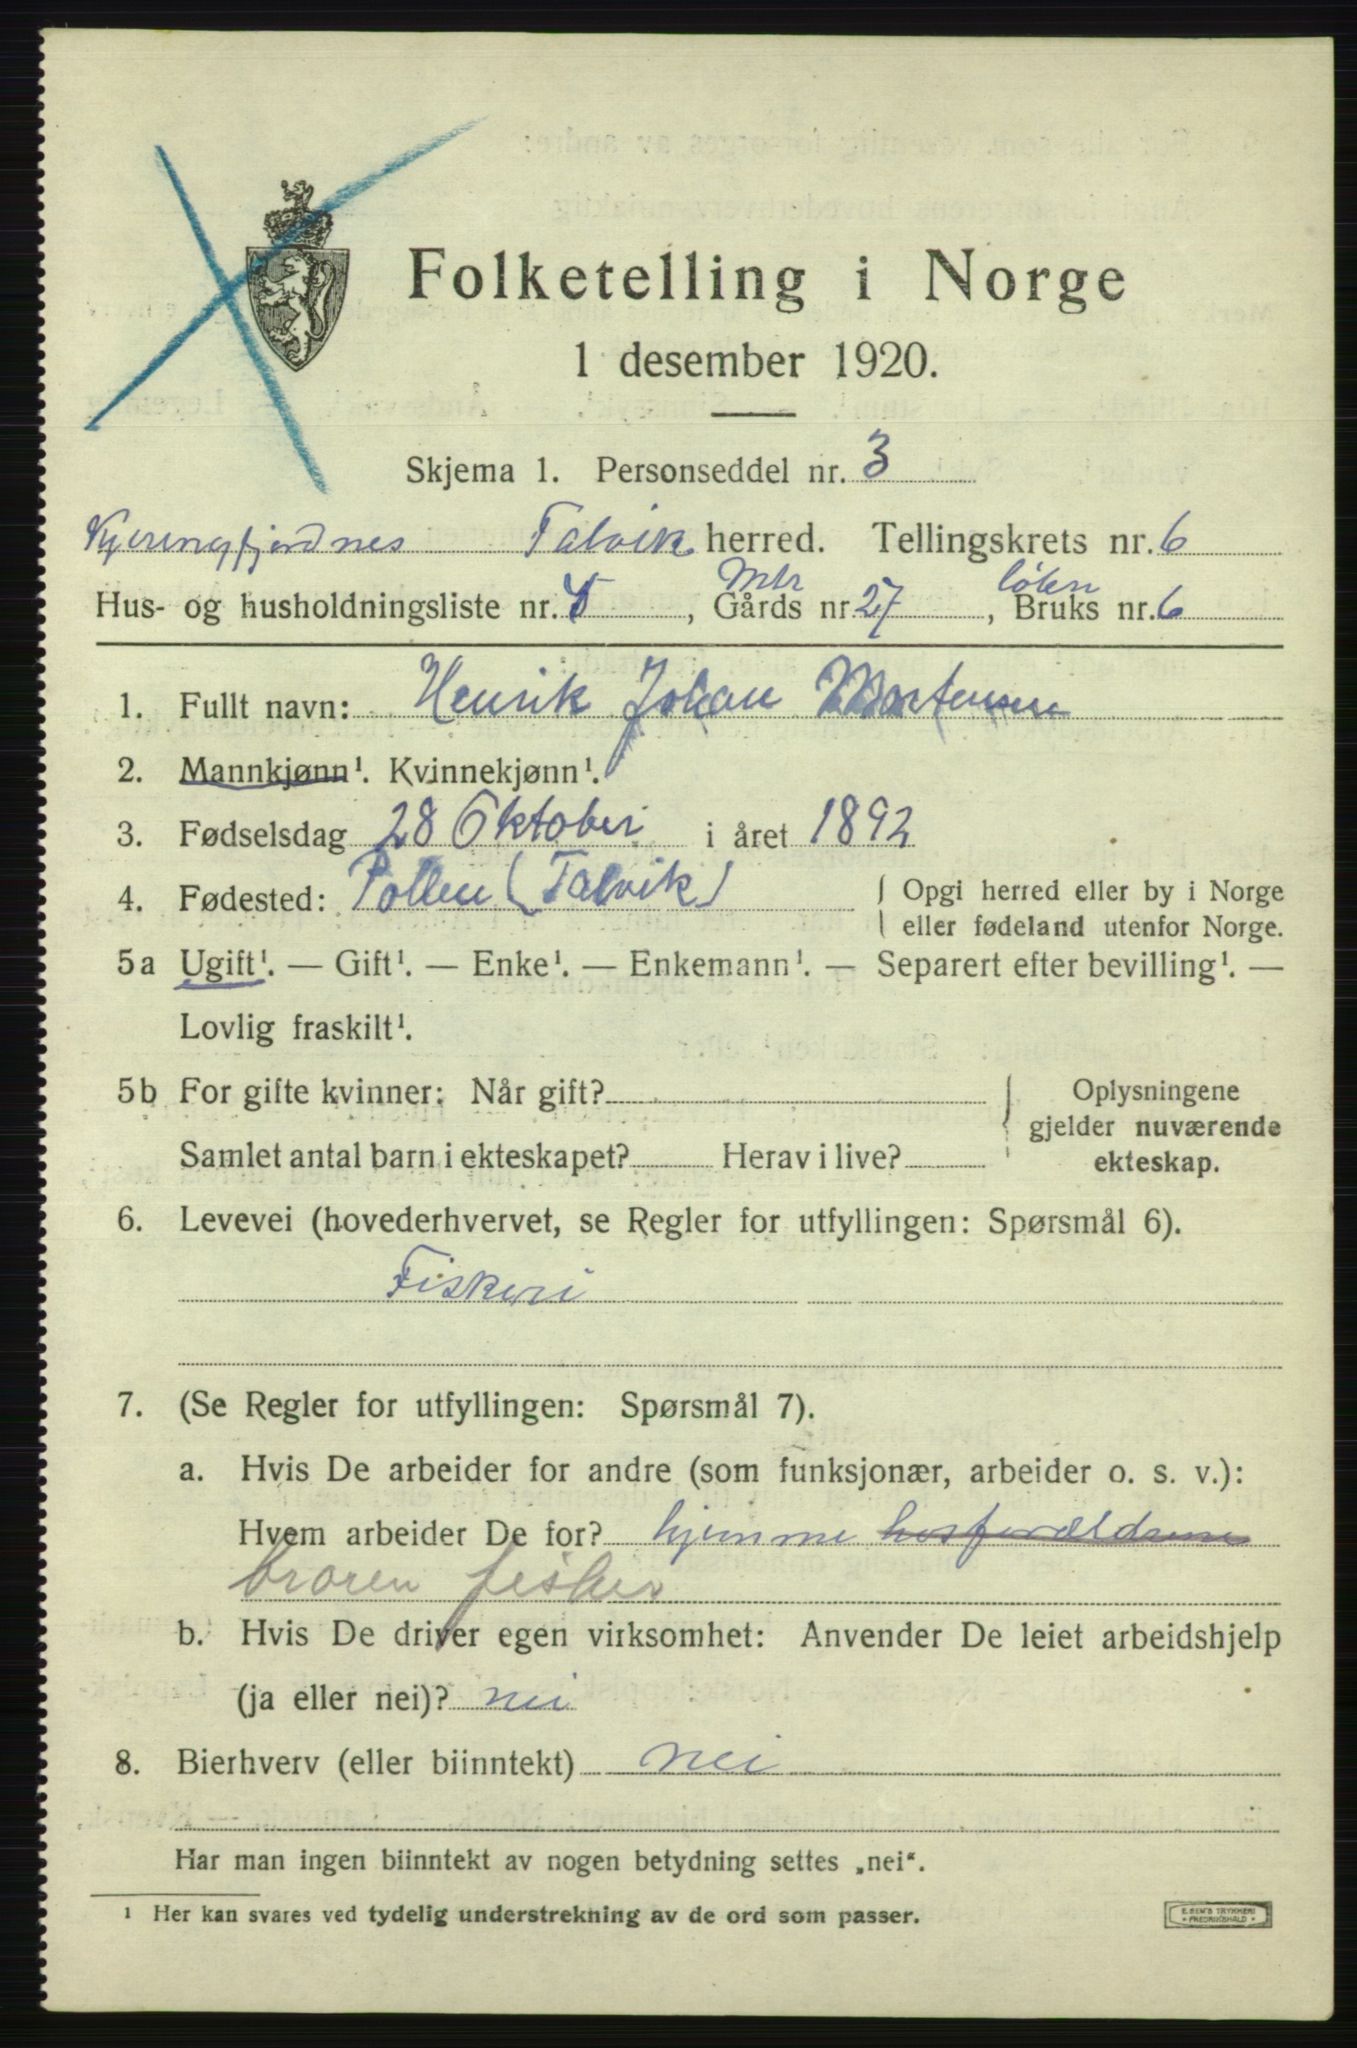 Folketelling i Norge
1 desember 1920.
Skjema 1. Personseddel nr. 3
Kjerringfjordnes Talvik herred. Tellingskrets nr. 6
Mtr løben
Hus- og husholdningsliste nr. , Gårds nr. 27 , Bruks nr. 6
1. Fullt navn: Henrik Johan Mortensen
2. Mannkjønn¹. Kvinnekjønn¹.
3. Fødselsdag 28 Oktober i året 1892
4. Fødested: Pollen (Talvik) { Opgi herred eller by i Norge
eller fødeland utenfor Norge.
5a Ugift¹. — Gift¹. — Enke¹. — Enkemann¹. — Separert efter bevilling¹. —
Lovlig fraskilt¹.
5b For gifte kvinner: Når gift? { Oplysningene
gjelder nuværende
Samlet antal barn i ekteskapet? Herav i live? ekteskap.
6. Levevei (hovederhvervet, se Regler for utfyllingen: Spørsmål 6).
Fiskeri
7. (Se Regler for utfyllingen: Spørsmål 7).
a. Hvis De arbeider for andre (som funksjonær, arbeider o. s. v.):
Hvem arbeider De for? hjemme hosforældrene
broren fisker
b. Hvis De driver egen virksomhet: Anvender De leiet arbeidshjelp
(ja eller nei)? nei
8. Bierhverv (eller biinntekt) nei
Har man ingen biinntekt av nogen betydning settes „nei“.
¹ Her kan svares ved tydelig understrekning av de ord som passer.
E. SEM'S TRYKKERI
FREDRIKSHALD